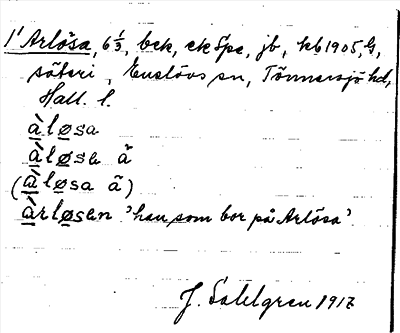 1' Arlösa, 6⅓, bck, ckSpc, jb, kb 1905, G,
säteri, Enslövs sn, Tönnersjö hd,
Hall. l.
àløsa
àløsa ä
(àløsa ã)
àrløsen 'han som bor på Arlösa'.
J. Sahlgren 1917